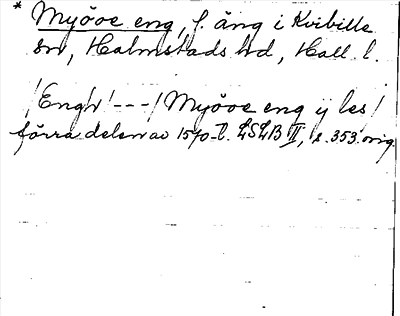 * Myöoe eng, f. äng i Kvibille
sn, Halmstads hd, Hall. l.
/Engh/ - - - / Myöoe eng ij les/
förra delen av 1570-t. LSLB II, s. 353. orig.